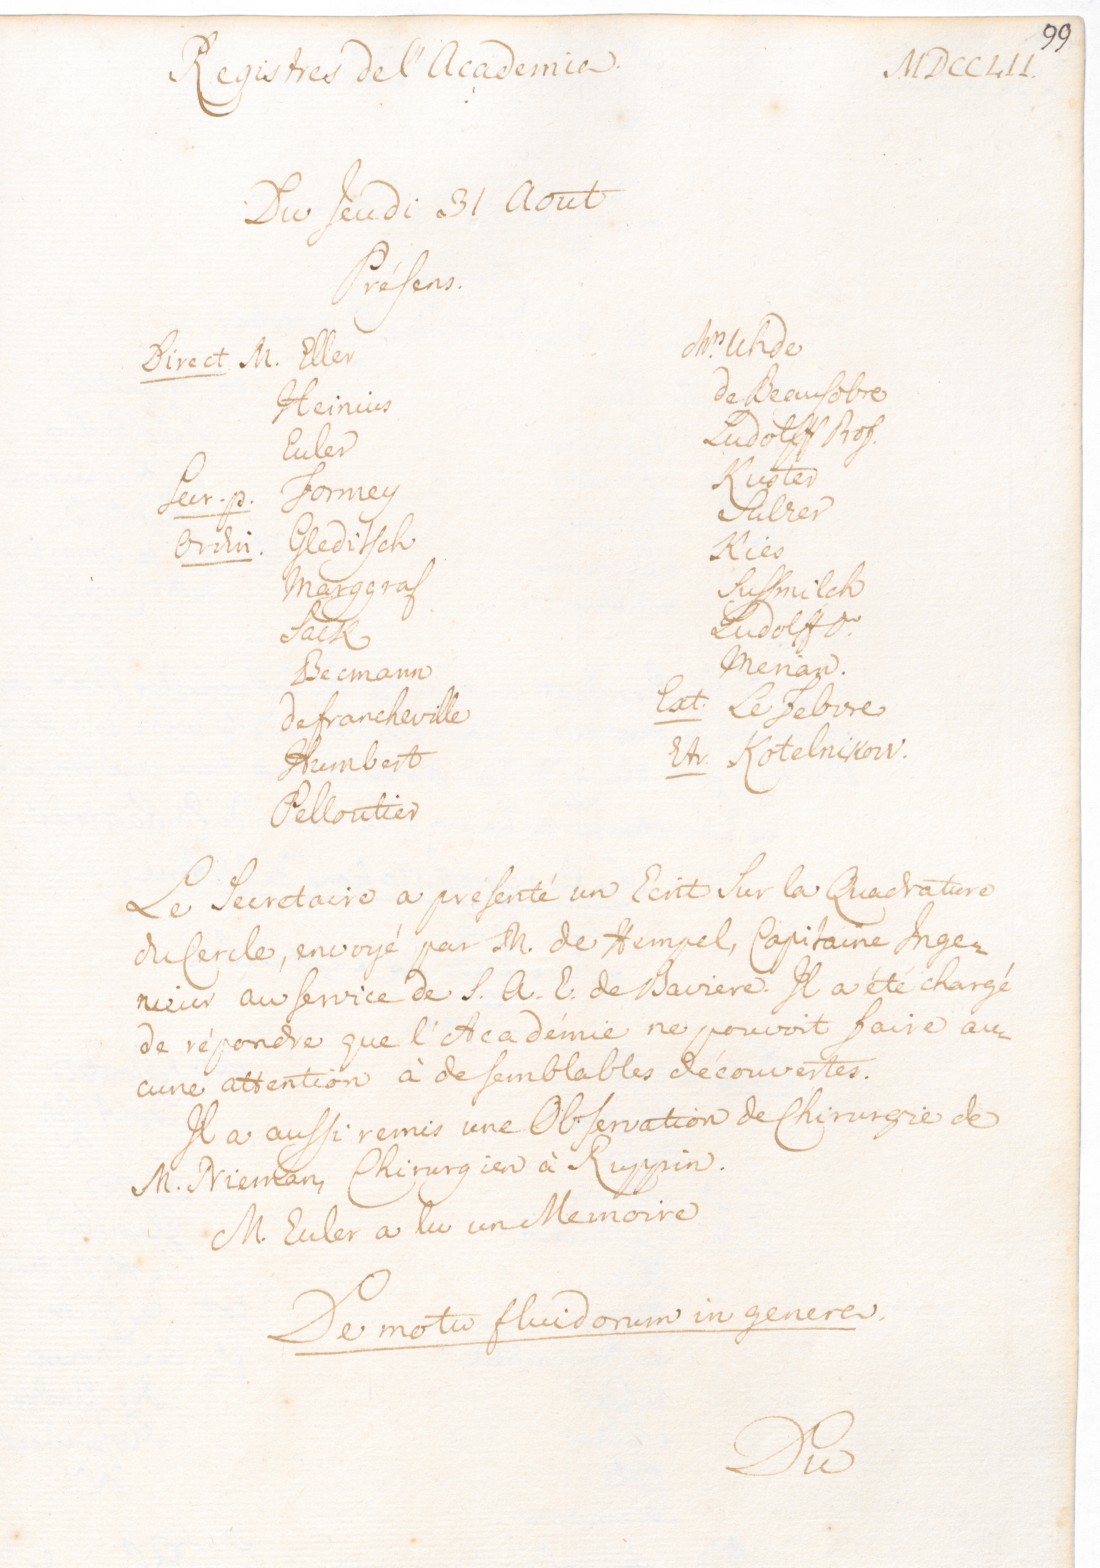 99
Registres de l'Academie.
MDCCLII.
Du Jeudi 31 Aout
Présens.
Direct M. Eller
Heinius
Euler
Secr. p. Formey
Ordin. Gleditsch
Marggraf
Sack
Becmann
de Francheville
Humbert
Pelloutier
Mrs. Uhde
de Beausobre
Ludolff Prof.
Kuster
Sulzer
Kies
Sussmilch
Ludolff
Merian.
Ext. Le Febvre
Etr. Kotelnikow.
Le Secretaire a presenté un Ecrit sur la Quadrature
du Cercle, envoyé par M. de Hempel, Capitaine Inge-
nieur au service de S. A. E. de Baviere. Il a été chargé
de répondre que l'Académie ne pouvoit faire au-
cune attention à de semblables découvertes.
Il a aussi remis une Observation de Chirurgie de
M. Nieman, Chirurgien à Ruppin.
M. Euler a lu un Memoire
De motu fluidorum in genere.
Du